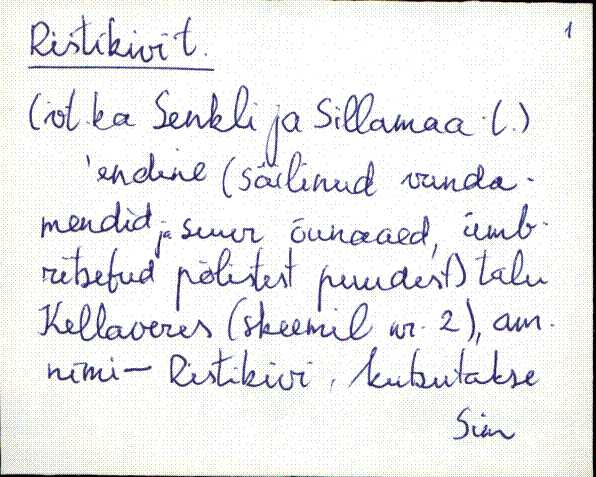 Ristikivi t. 1
(vt. ka Senkli ja Sillamaa t.)
'endine (säilinud vunda-
mendid ja suur õunaaed, ümb-
ritsetud põlistest puudest) talu
Kellaveres (skeemil nr. 2), am.
nimi — Ristikivi, kutsutakse